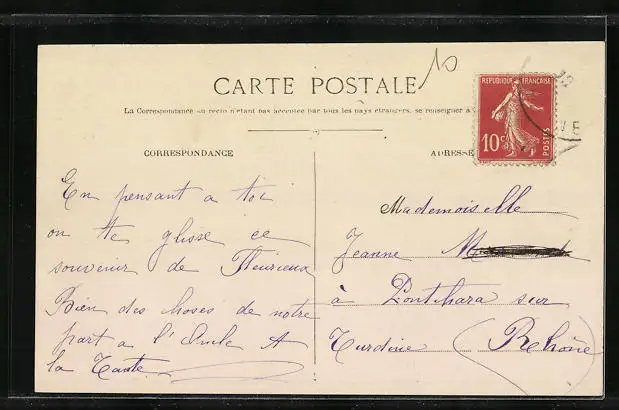 10
CARTE POSTALE
La Correspondance au recto n'étant pas acceptée par tous les pays étrangers, se renseigner à
REPUBLIQUE FRANÇAISE
10c
POSTES
CORRESPONDANCE
ADRESSE
En pensant a toi
on te glisse ce
souvenir de Fleurieux
Bien des choses de notre
part a l'Oncle et
la Tante
Mademoiselle
Jeanne
à Pontchara sur
Turdine (Rhône)